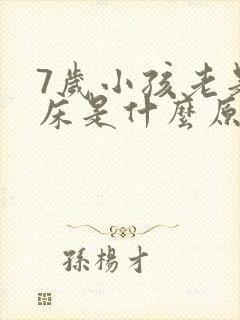 7歲小孩老是
床是什麼原
孫楊才